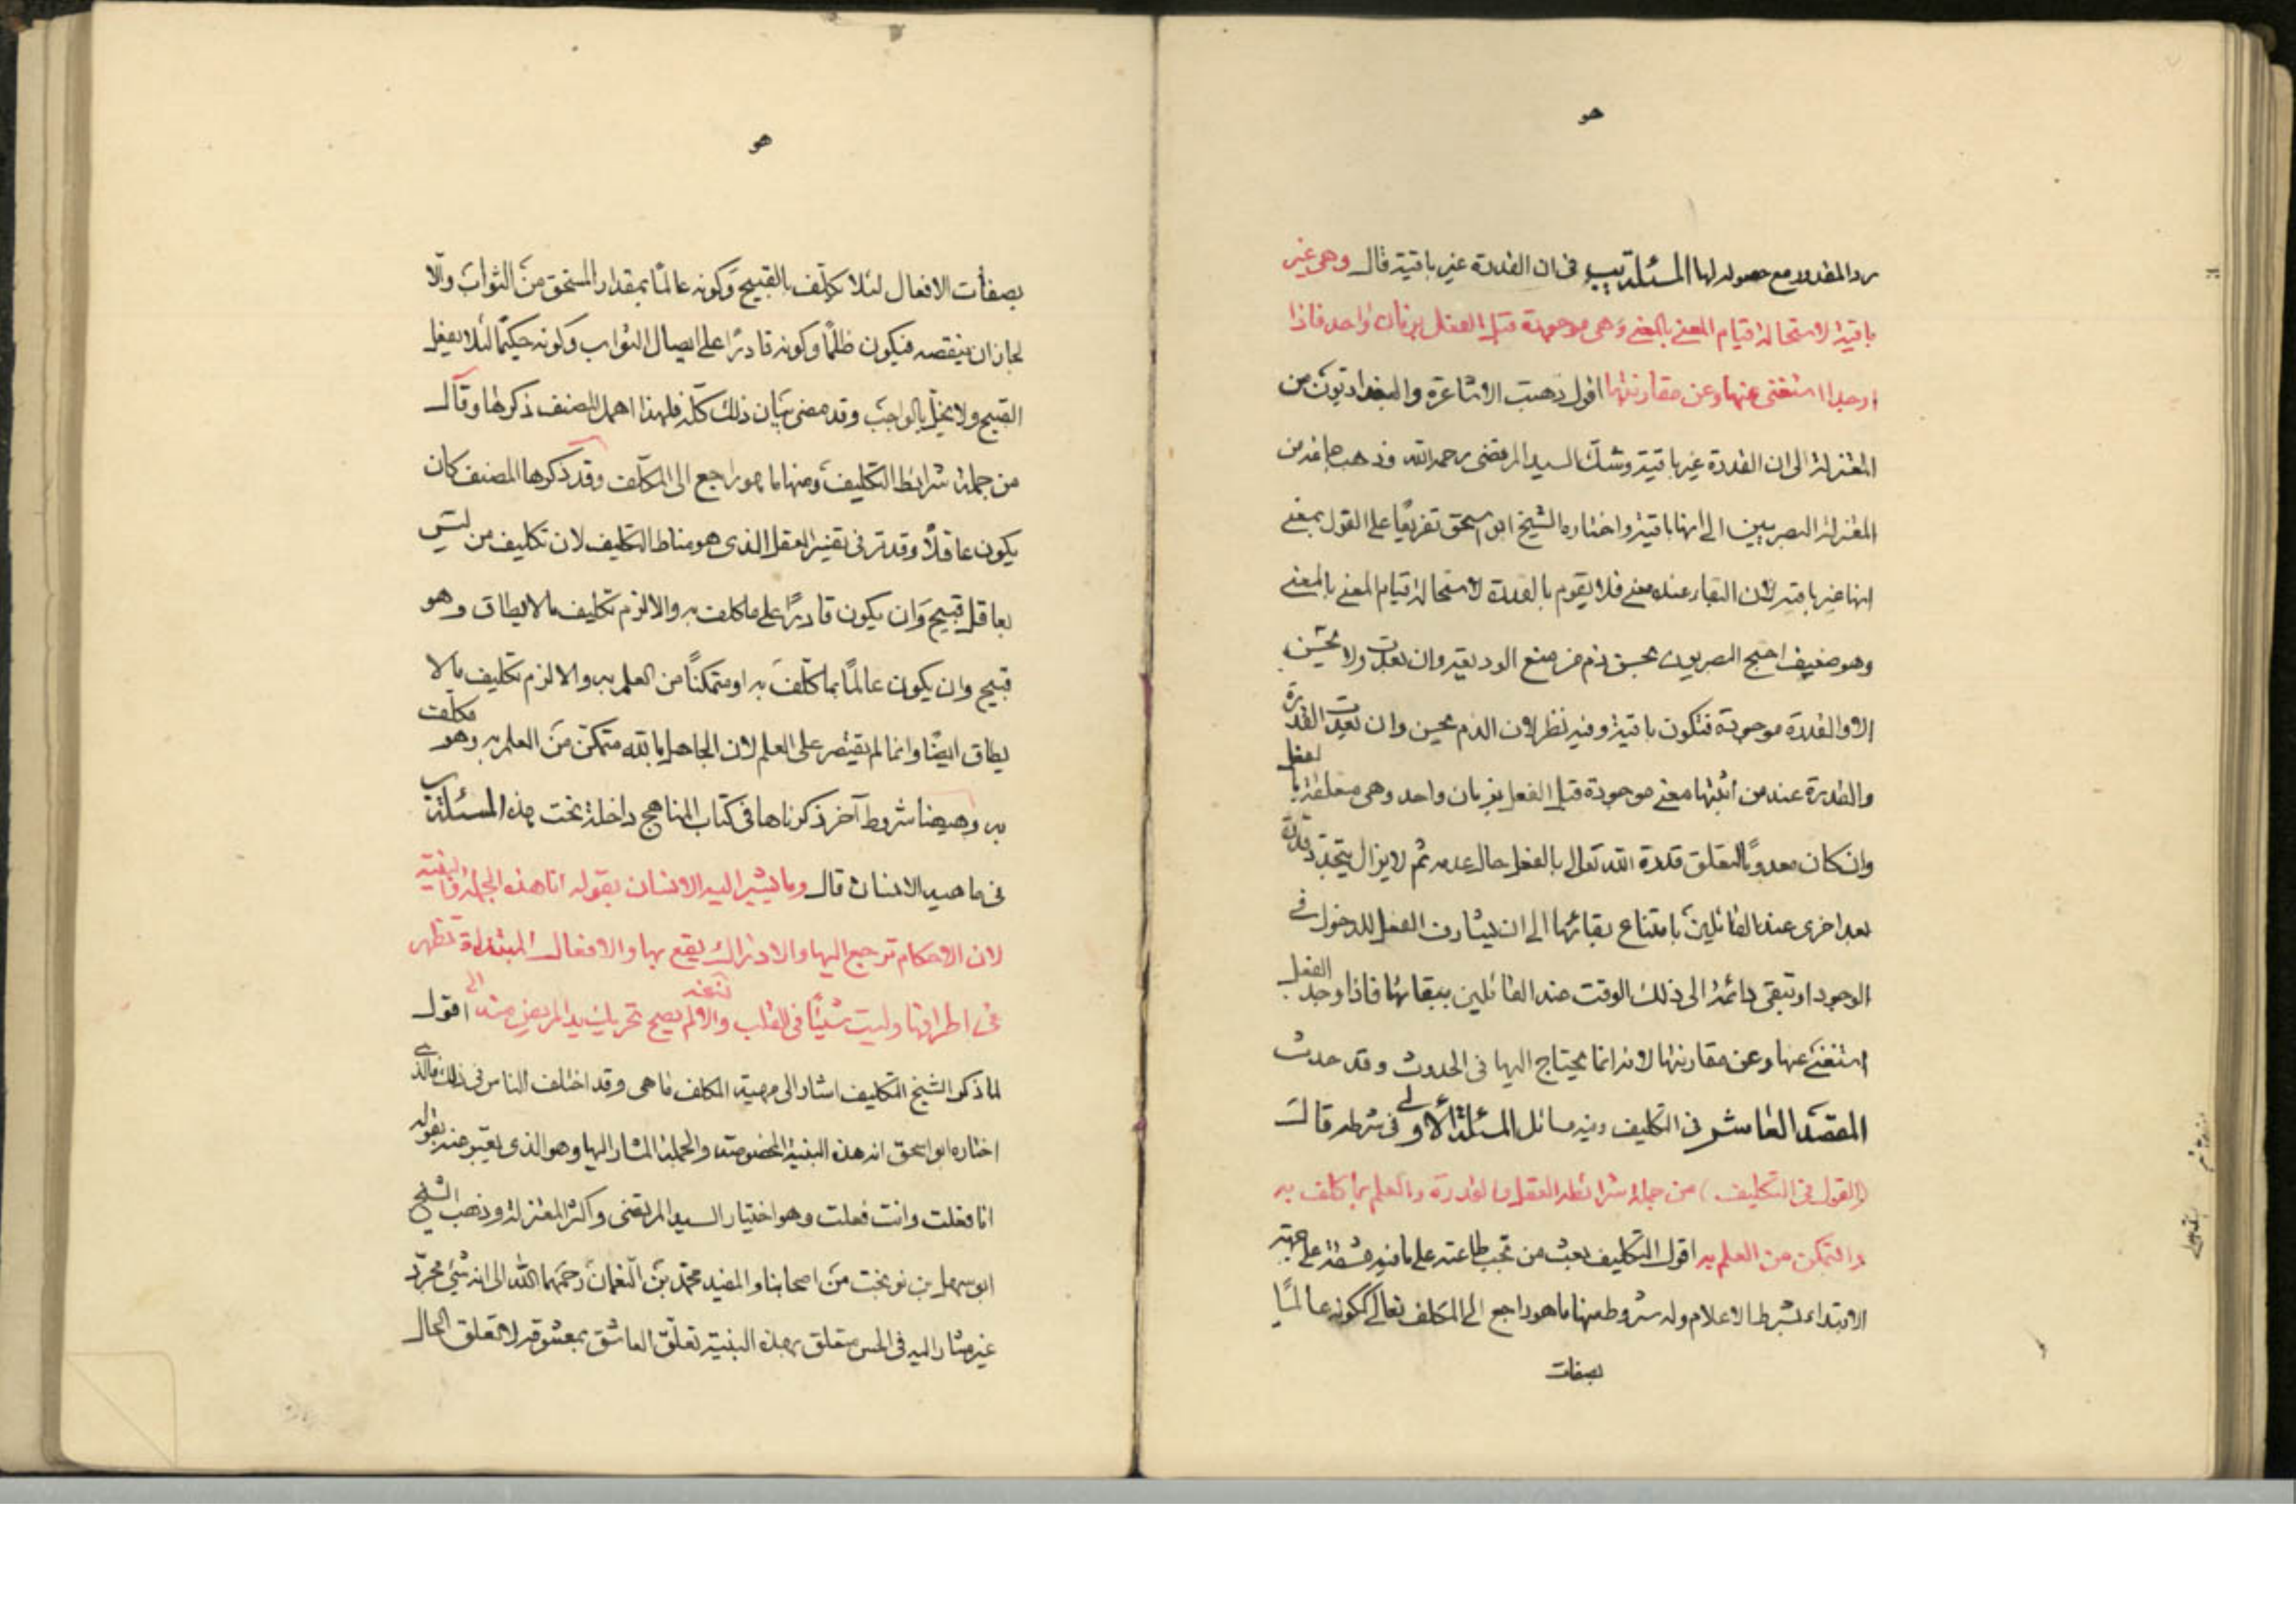 هو
رد المقدور مع حصوله لها المسئلة يب في ان القدرة غير باقية قال وهي غير
باقية لاستحالة قيام المعنى بالمعنى وهي موجودة قبل الفعل بزمان واحد فاذا
وجد استغنى عنها وعن مقارنتها اقول ذهبت الاشاعرة والبغداديون من
المعتزلة الى ان القدرة غير باقية وشك السيد المرتضى رحمه الله وذهب جماعة من
المعتزلة البصريين الى انها باقية واختاره الشيخ ابو اسحق تفريعًا على القول بمعنى
انها غير باقية لان البقاء عنده معنى فلا يقوم بالقدرة لاستحالة قيام المعنى بالمعنى
وهو ضعيف احتج البصريون بحسن ذم من منع الوديعة وان بعدت ولا يحسن
الا والقدرة موجودة فتكون باقية وفيه نظر لان الذم يحسن وان بعدت القدرة
والقدرة عند من اثبتها معنى موجودة قبل الفعل بزمان واحد وهي متعلقة بالفعل
وان كان معدومًا لتعلق قدرة الله تعالى بالفعل حال عدمه ثم لا يزال يتجدد قدرة
بعد اخرى عند القائلين بامتناع بقائها الى ان يشارف الفعل للدخول في
الوجود او تبقى دائمة الى ذلك الوقت عند القائلين ببقائها فاذا وجد الفعل
استغنى عنها وعن مقارنتها لانه انما يحتاج اليها في الحدوث وقد حدث
المقصد العاشر في التكليف وفيه مسائل المسئلة الاولى في شرطه قال
(القول في التكليف) من جملة شرائطه العقل والقدرة والعلم بما كلف به
والتمكن من العلم به اقول التكليف بعث من تجب طاعته على ما فيه مشقة على جهة
الابتداء بشرط الاعلام وله شروط منها ما هو راجع الى المكلف تعالى ككونه عالمًا
بصفات
هو
بصفات الافعال لئلا يكلّف بالقبيح وكونه عالمًا بمقدار المستحق من الثواب والّا
لجاز ان ينقصه فيكون ظلمًا وكونه قادرًا على ايصال الثواب وكونه حكيمًا لئلا يفعل
القبيح ولا يخلّ بالواجب وقد مضى بيان ذلك كلّه فلهذا اهمل المصنف ذكرها وقال
من جملة شرايط التكليف ومنها ما هو راجع الى المكلّف وقد ذكرها المصنف كان
يكون عاقلًا وقد مرّ في تفسير العقل الذى هو مناط التكليف لان تكليف من ليس
بعاقل قبيح وان يكون قادرًا على ما كلف به والا لزم تكليف ما لا يطاق وهو
قبيح وان يكون عالمًا بما كلّف به او متمكنًا من العلم به والا لزم تكليف ما لا
يطاق ايضًا وانما لم يقتصر على العلم لان الجاهل بالله متمكن من العلم به وهو مكلف
به وهيهنا شروط آخر ذكرناها في كتاب المناهج داخلة تحت هذه المسئلة ب
في ماهية الانسان قال وما يشير اليه الانسان بقوله انا هذه الجملة والبنية
لان الاحكام ترجع اليها والادراك يقع بها والافعال المبتداة تظهر
في اطرافها وليست شيئًا في القلب والا لم يصح تحريك يد المريض منه اقول
لما ذكر الشيخ التكليف اشار الى مهية المكلف ما هى وقد اختلف الناس في ذلك فالذى
اختاره ابو اسحق انه هذه البنية المخصوصة والجملة المشار اليها وهو الذى يعبّر عنه بقوله
انا فعلت وانت فعلت وهو اختيار السيد المرتضى واكثر المعتزلة وذهب الشيخ
ابو سهل بن نوبخت من اصحابنا والمفيد محمّد بن النّعمان رحمهما الله الى انه شئ مجرّد
غير مشار اليه في الحس متعلق بهذه البنية تعلّق العاشق بمعشوقه لا تعلق الحال